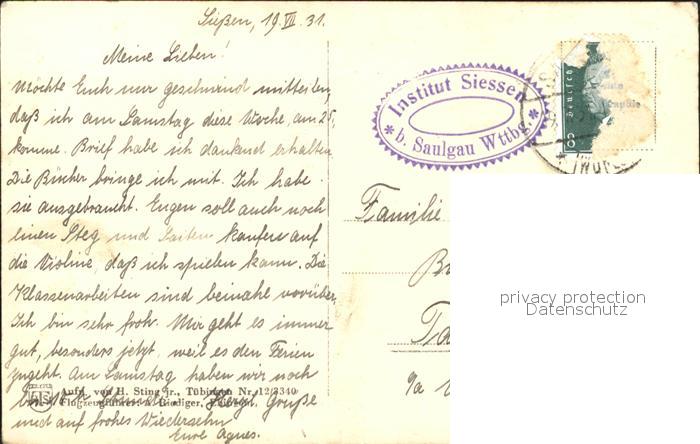 Sießen, 19.VII.31.
Meine Lieben!
Möchte Euch nur geschwind mitteilen,
daß ich am Samstag diese Woche, am 25,
komme. Brief habe ich dankend erhalten
Die Bücher bringe ich mit. Ich habe
sie ausgebraucht. Eugen soll auch noch
einen Steg und Saiten kaufen auf
die Violine, daß ich spielen kann. Die
Klassenarbeiten sind beinahe vorüber,
Ich bin sehr froh. Mir geht es immer
gut, besonders jetzt, weil es den Ferien
zugeht. Am Samstag haben wir noch
Herzl. Grüße
und auf frohes Wiedersehn
Eure Agnes.
Aufn. von H. Sting jr., Tübingen Nr. 12/3340
Flugzeugführer:
Institut Siessen
* b. Saulgau Wttbg. *
Familie
privacy protection
Datenschutz